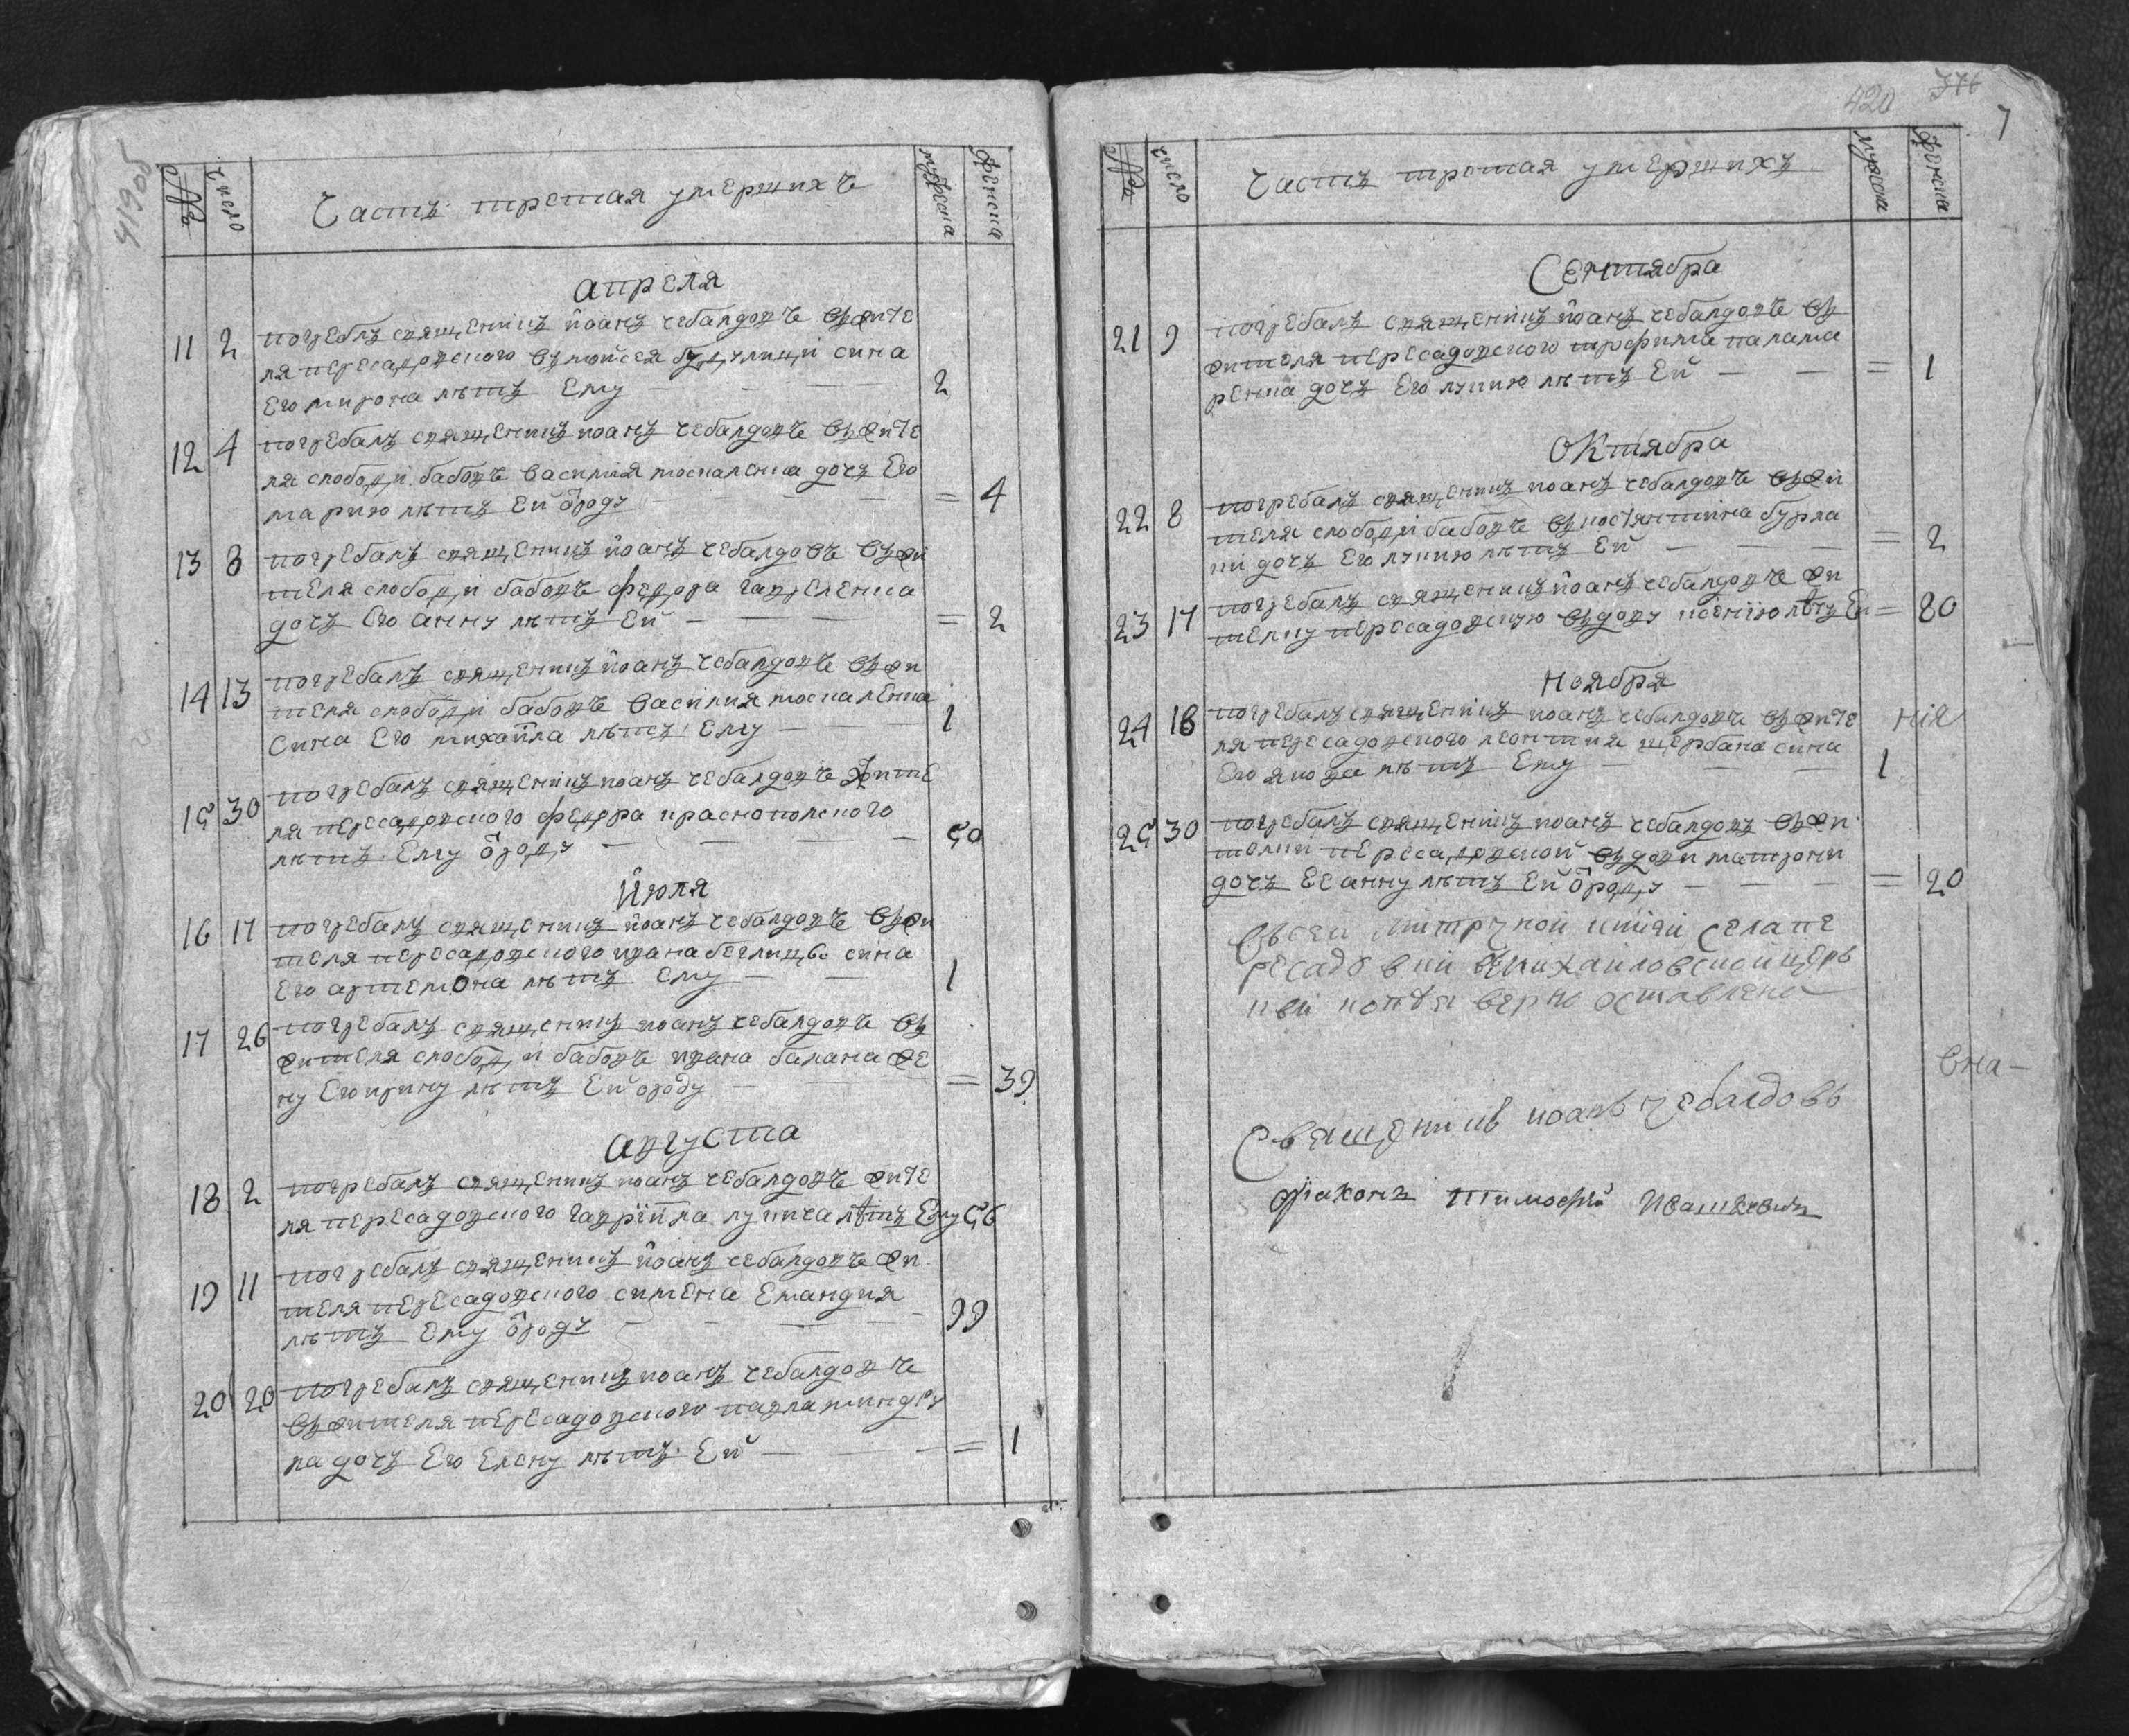 419об
№ число Часть третая умерших мужеска женска
апреля
11 2 погребалъ священикъ иоанъ чебалдовъ въ жите
ля пересадовского въ моисея сина
Его мирона лѣтъ Ему — — — 2
12 4 погребалъ священикъ иоанъ чебалдовъ въ жите
ля слободи бабовъ василия москаленка дочъ Его
марию лѣтъ Ей ѿроду — — — = 4
13 8 погребалъ священикъ иоанъ чебалдовъ въ жи
теля слободи бабовъ федора гавреленка
дочъ Его анну лѣтъ Ей — — — = 2
14 13 погребалъ священикъ иоанъ чебалдовъ въ жи
теля слободи бабовъ василия москаленка
сина Его михаила лѣтъ Ему — — 1
15 30 погребалъ священикъ иоанъ чебалдовъ жите
ля пересадовского федора краснополского
лѣтъ Ему ѿроду — — — — 50
Июля
16 17 погребалъ священикъ иоанъ чебалдовъ въ жи
теля пересадовского ивана сина
Его артемона лѣтъ Ему — — 1
17 26 погребалъ священикъ иоанъ чебалдовъ въ
жителя слободи бабовъ ивана балана же
ну Его ирину лѣтъ Ей ѿроду — — = 39
августа
18 2 погребалъ священикъ иоанъ чебалдовъ жите
ля пересадовского гавриила лупича лѣтъ Ему 56
19 11 погребалъ священикъ иоанъ чебалдовъ жи
теля пересадовского симена Емандия
лѣтъ Ему ѿроду — — — — 99
20 20 погребалъ священикъ иоанъ чебалдовъ
въ жителя пересадовского павла миндру
ла дочъ Его Елену лѣтъ Ей — — = 1
420 376
7
№ число Часть третая умершихъ мужеска женска
Сентября
21 9 погребалъ священикъ иоанъ чебалдовъ въ
жителя пересадовского трофима палама
ренка дочъ Его лукию лѣтъ Ей — — = 1
октября
22 8 погребалъ священикъ иоанъ чебалдовъ въ жи
теля слободи бабовъ въ костянтина бурла
ки дочъ Его лукию лѣтъ Ей — — — = 2
23 17 погребалъ священикъ иоанъ чебалдовъ жи
телку пересадовскую въдову ксению лѣтъ Ей = 80
ноября
24 18 погребалъ священикъ иоанъ чебалдовъ въ жите
ля пересадовского леонтия щербана сина
Его якова лѣтъ Ему — — — 1
нія
25 30 погребалъ священикъ иоанъ чебалдовъ въ жи
телки пересадовской въдови матрони
дочъ Ее анну лѣтъ Ей ѿроду — — — = 20
Овсей митричной книги села пе
ресадовки въ михайловской церк
вки копия верно оставлена
вна-
Священикъ иоанъ чебалдовъ
Диаконъ Тимофей Ивашкевичъ